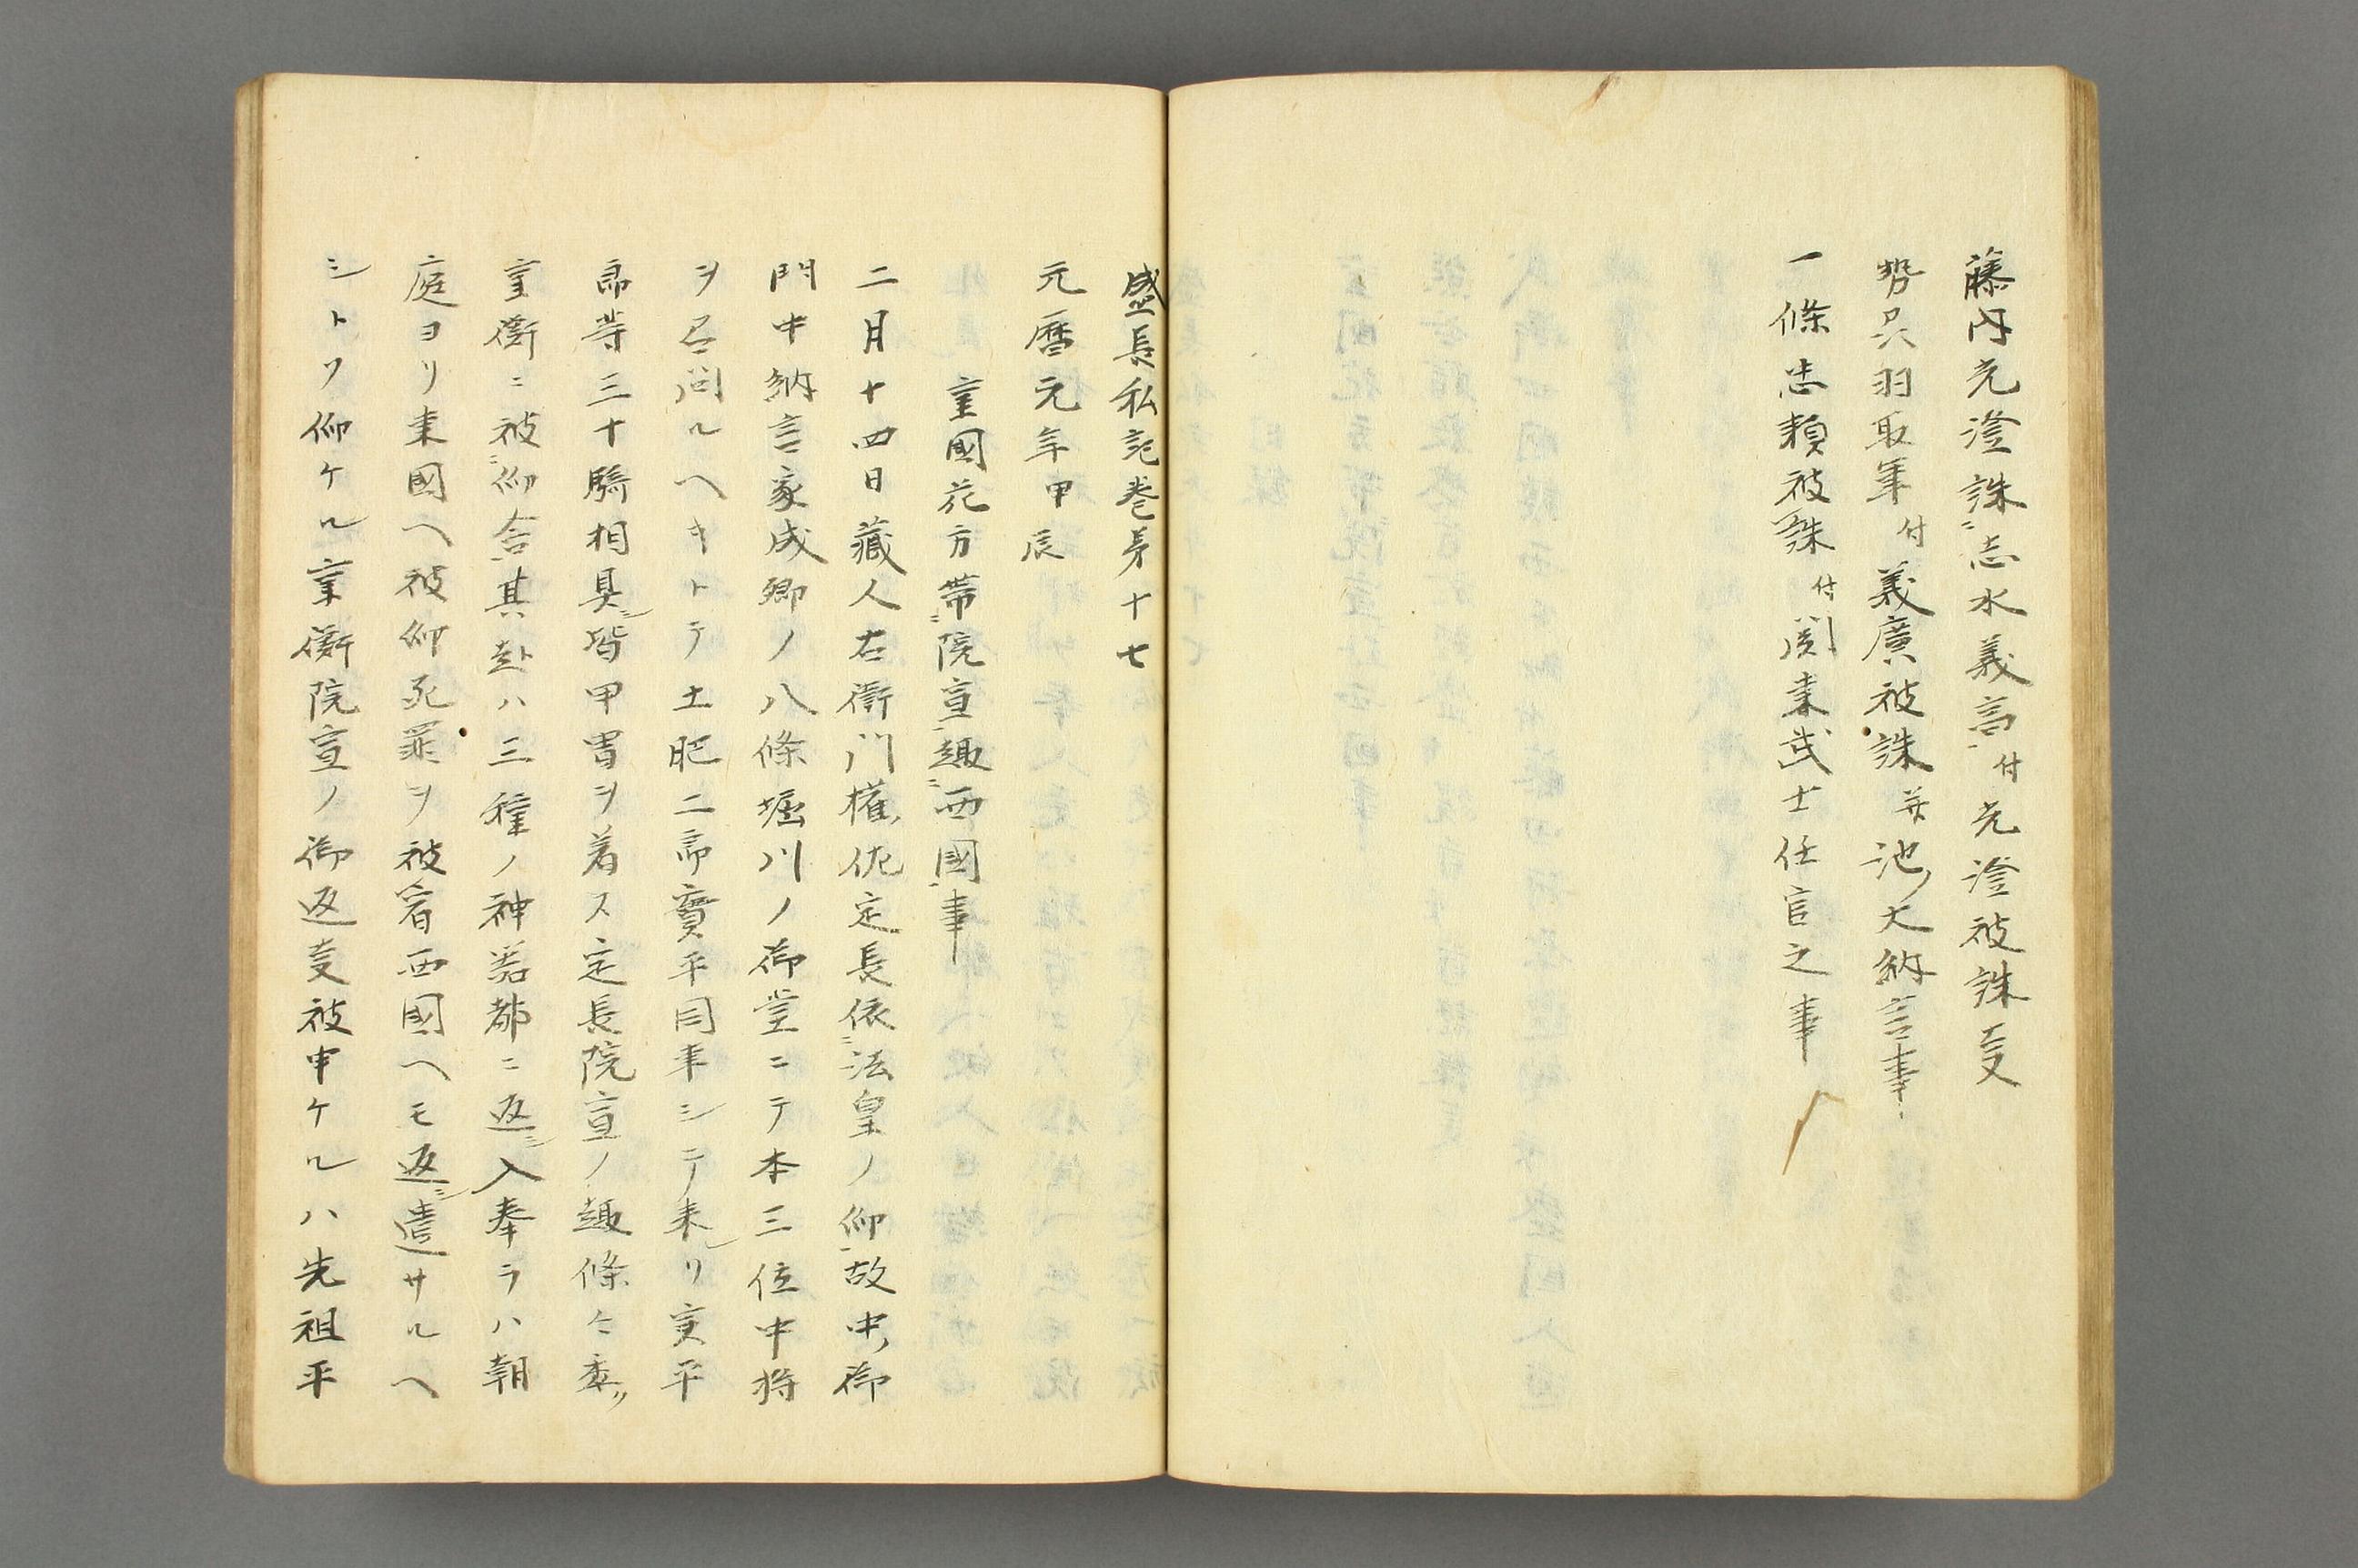 藤内光澄誅ニ志水義高一付光澄被誅叓
勢只羽取軍付義廣被誅并池ノ大納言事
一條忠頼被誅付関東武士任官之事
盛長私記巻㐧十七
元暦元年甲辰
重國花方帯ニ院宣一趣ニ西國一事
二月十四日藏人右衛門權ノ佐定長依ニ法皇ノ仰一故中ノ御
門中納言家成卿ノ八條堀川ノ御堂ニテ本三位中将
ヲ召問ルヘキトテ土肥二郎實平同車シテ来リ実平
郎等三十騎相具シ皆甲冑ヲ着ス定長院宣ノ趣條々委ツ
重衡ニ被ニ仰含其趣ハ三種ノ神器都ニ返シ入奉ラハ朝
庭ヨリ東國ヘ被仰死罪ヲ被宥西國ヘモ返シ遣サルヘ
シトソ仰ケル重衡院宣ノ御返叓被申ケルハ先祖平